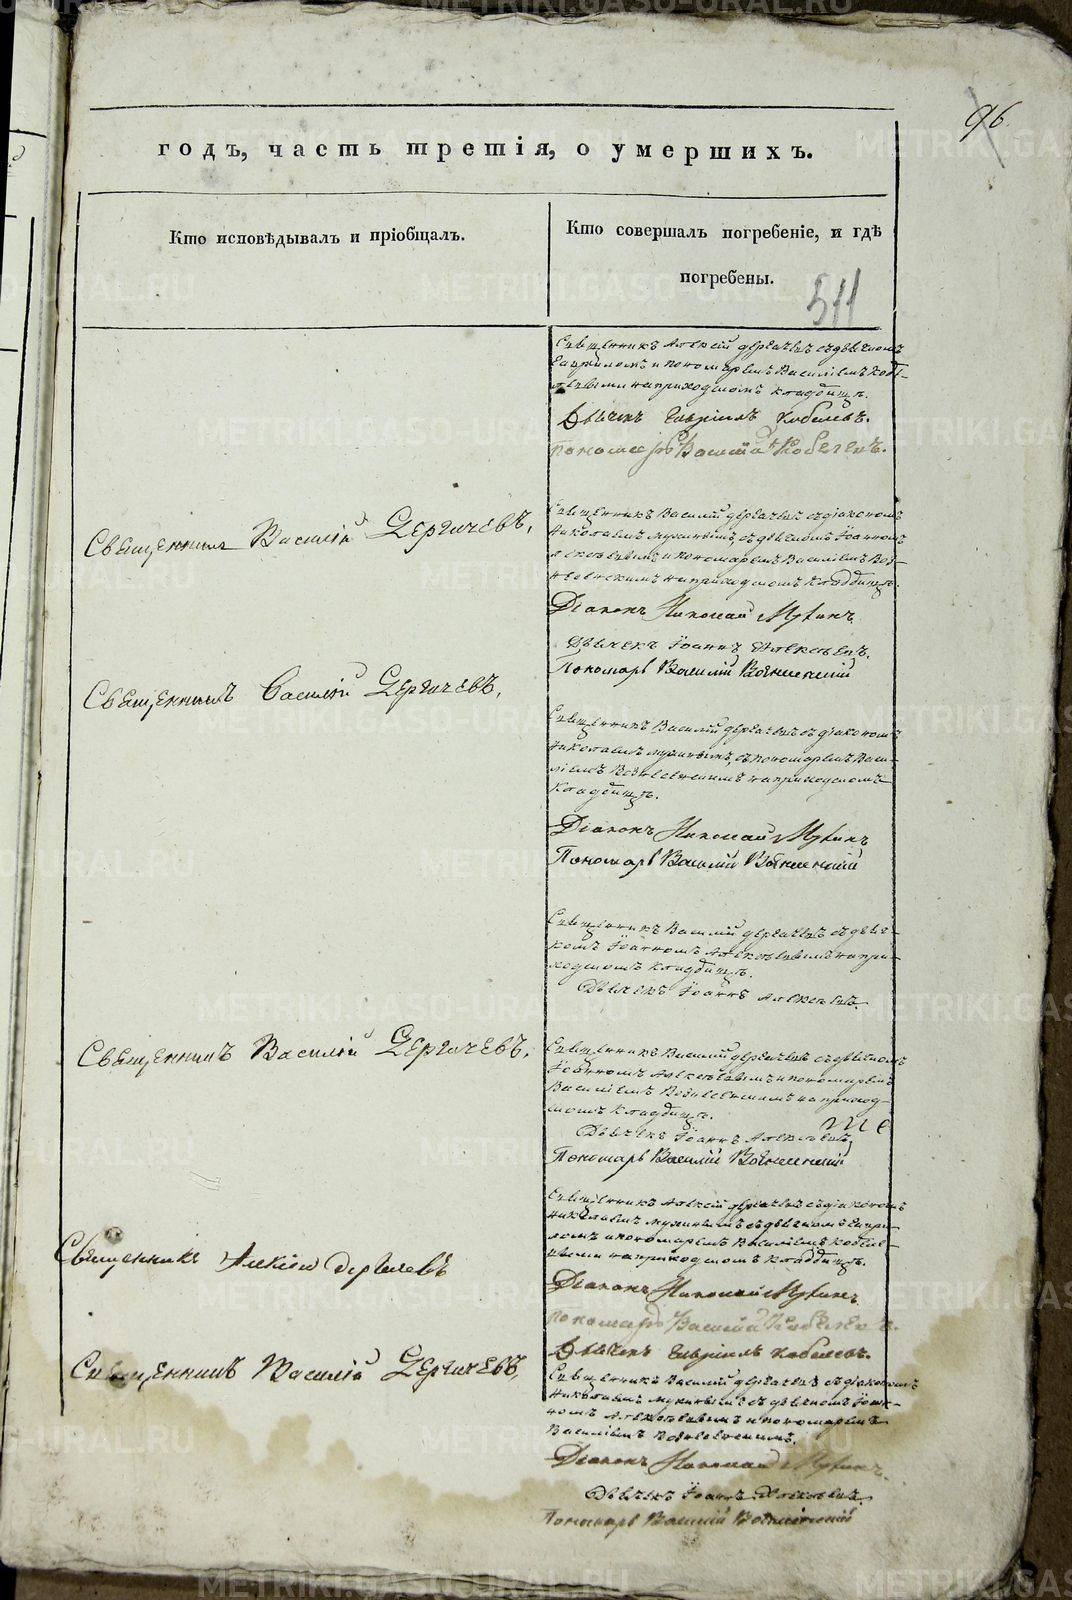 96
годъ, часть третія, о умершихъ.
Кто исповѣдывалъ и пріобщалъ.
Кто совершалъ погребеніе, и гдѣ
погребены.
511
Священникъ Алексій Дергачевъ съ дьячкомъ
Гавріиломъ и пономаремъ Василіемъ Кобе-
левыми на приходскомъ кладбищѣ.
Дьячекъ Гавріилъ Кобелевъ.
Пономарь Василій Кобелевъ.
Священникъ Василій Дергачевъ,
Священникъ Василій Дергачевъ съ діакономъ
Николаемъ Мухинымъ, съ дьячкомъ Іоанномъ
Алексѣевымъ и пономаремъ Василіемъ Воз-
несенскимъ на приходскомъ кладбищѣ.
Діаконъ Николай Мухинъ.
Дьячекъ Іоаннъ Алексѣевъ.
Пономарь Василій Вознесенскій
Священникъ Василій Дергачевъ,
Священникъ Василій Дергачевъ съ діакономъ
Николаемъ Мухинымъ, съ пономаремъ Васи-
ліемъ Вознесенскимъ на приходскомъ
кладбищѣ.
Діаконъ Николай Мухинъ
Пономарь Василій Вознесенскій
Священникъ Василій Дергачевъ съ дьяч-
комъ Іоанномъ Алексѣевымъ на при-
ходскомъ кладбищѣ.
Дьячекъ Іоаннъ Алексѣевъ
Священникъ Василій Дергачевъ,
Священникъ Василій Дергачевъ съ дьячкомъ
Іоанномъ Алексѣевымъ и пономаремъ
Василіемъ Вознесенскимъ на приход-
скомъ кладбищѣ.
Дьячекъ Іоаннъ Алексѣевъ
Пономарь Василій Вознесенскій
Священникъ Алексій Дергачевъ
Священникъ Алексій Дергачевъ съ діакономъ
Николаемъ Мухинымъ съ дьячкомъ Гаврі-
ломъ и пономаремъ Василіемъ Кобеле-
выми на приходскомъ кладбищѣ.
Діаконъ Николай Мухинъ.
Пономарь Василій Кобелевъ.
Дьячекъ Гавріилъ Кобелевъ.
Священникъ Василій Дергачевъ,
Священникъ Василій Дергачевъ съ діакономъ
Николаемъ Мухинымъ съ дьячкомъ Іоан-
номъ Алексѣевымъ и пономаремъ
Василіемъ Вознесенскимъ.
Діаконъ Николай Мухинъ.
Дьячекъ Іоаннъ Алексѣевъ
Пономарь Василій Вознесенскій
METRIKI.GASO-URAL.RU